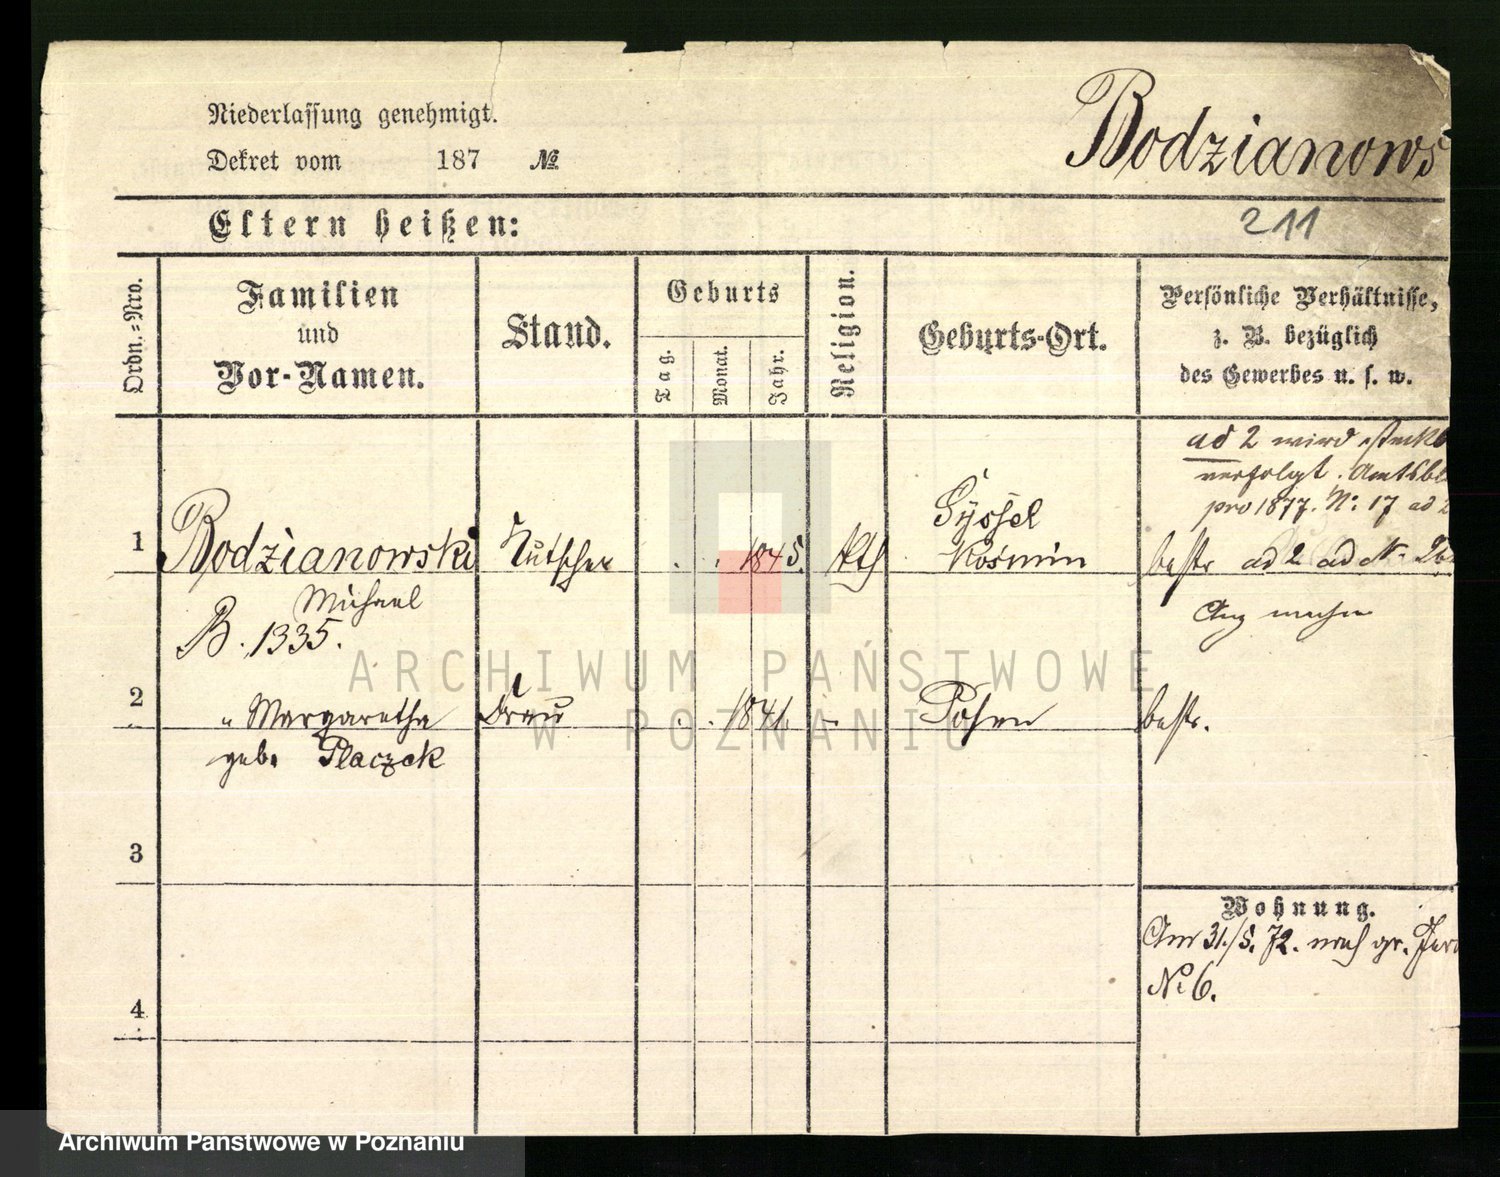 Niederlassung genehmigt.
Dekret vom 187 №
Bodzianows
Eltern heißen:
211
Ordn.=Nro.
Familien
und
Vor-Namen.
Stand.
Geburts
Tag.
Monat.
Jahr.
Religion.
Geburts-Ort.
Persönliche Verhältnisse,
z. B. bezüglich
des Gewerbes u. s. w.
ad 2 wird steckb
verfolgt. Amtsbl
pro 1877. N: 17 ad 2
1
Bodzianowski
Kutscher
1845.
Kth
Kosmin
bestr ad 2 ad N:
Michael
B. 1335.
2
" Margaretha
Frau
1841.
"
Posen
bestr.
geb. Placzek
3
Wohnung.
Am 31./5. 72. nach gr.
No 6.
4
ARCHIWUM PAŃSTWOWE
W POZNANIU
Archiwum Państwowe w Poznaniu